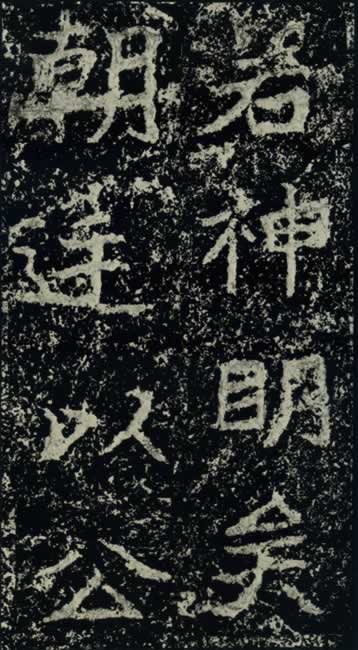 若神眀矣
朝廷以公